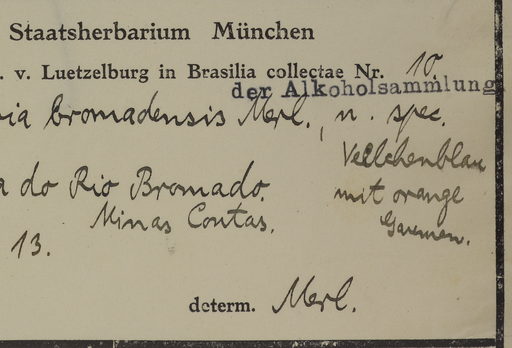 Staatsherbarium München
. v. Luetzelburg in Brasilia collectae Nr. 10.
der Alkoholsammlung
ria bromadensis Merl., n. spec.
Veilchenblau
a do Rio Bromado. mit orange
Minas Contas. Gaumen.
13.
determ. Merl.